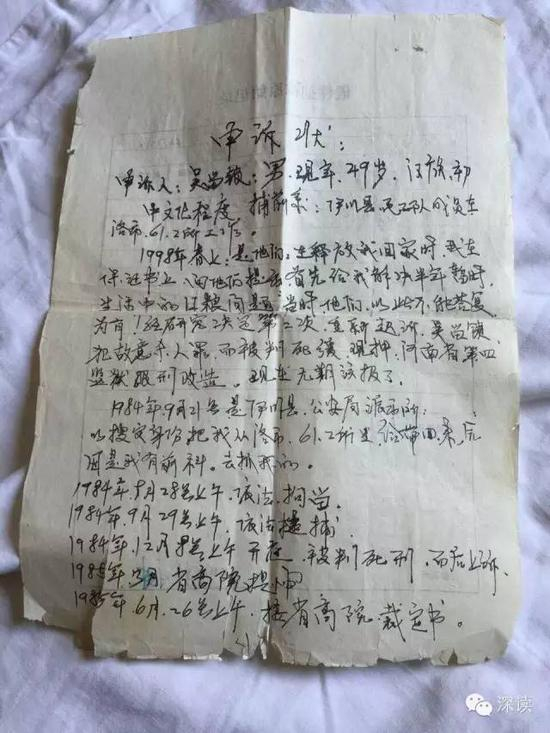 申诉状：
申诉人：吴尚锁，男，现年，49岁，汉族，初
中文化程度 捕前系：伊川县民工队人员在
洛市.61.2所工作。
1998年春上，是他们，在释放我回家时，我在
保证书上，向他们提 首先给我解决半年暂时
生活中的口粮问题，当时他们，以此不能答复
为有！经研究决定第2次，重新起诉，吴尚锁
犯故意杀人罪，而被判死缓，现押，河南省第四
监狱服刑改造。现在无期该报了
1984年9月21号是伊川县，公安局派出所：
以搜 身份把我从洛市，61.2所里 给带回来，后
因是我有前科。去抓我的。
1984年，9月28号上午，依法，拘留，
1984年，9月29号上午，依法逮捕
1984年，12月8号上午 开庭，被判死刑，而后上诉，
1985年，3月 省高院提
1985年，6月，26号上午，接省高院，裁定书。
深读